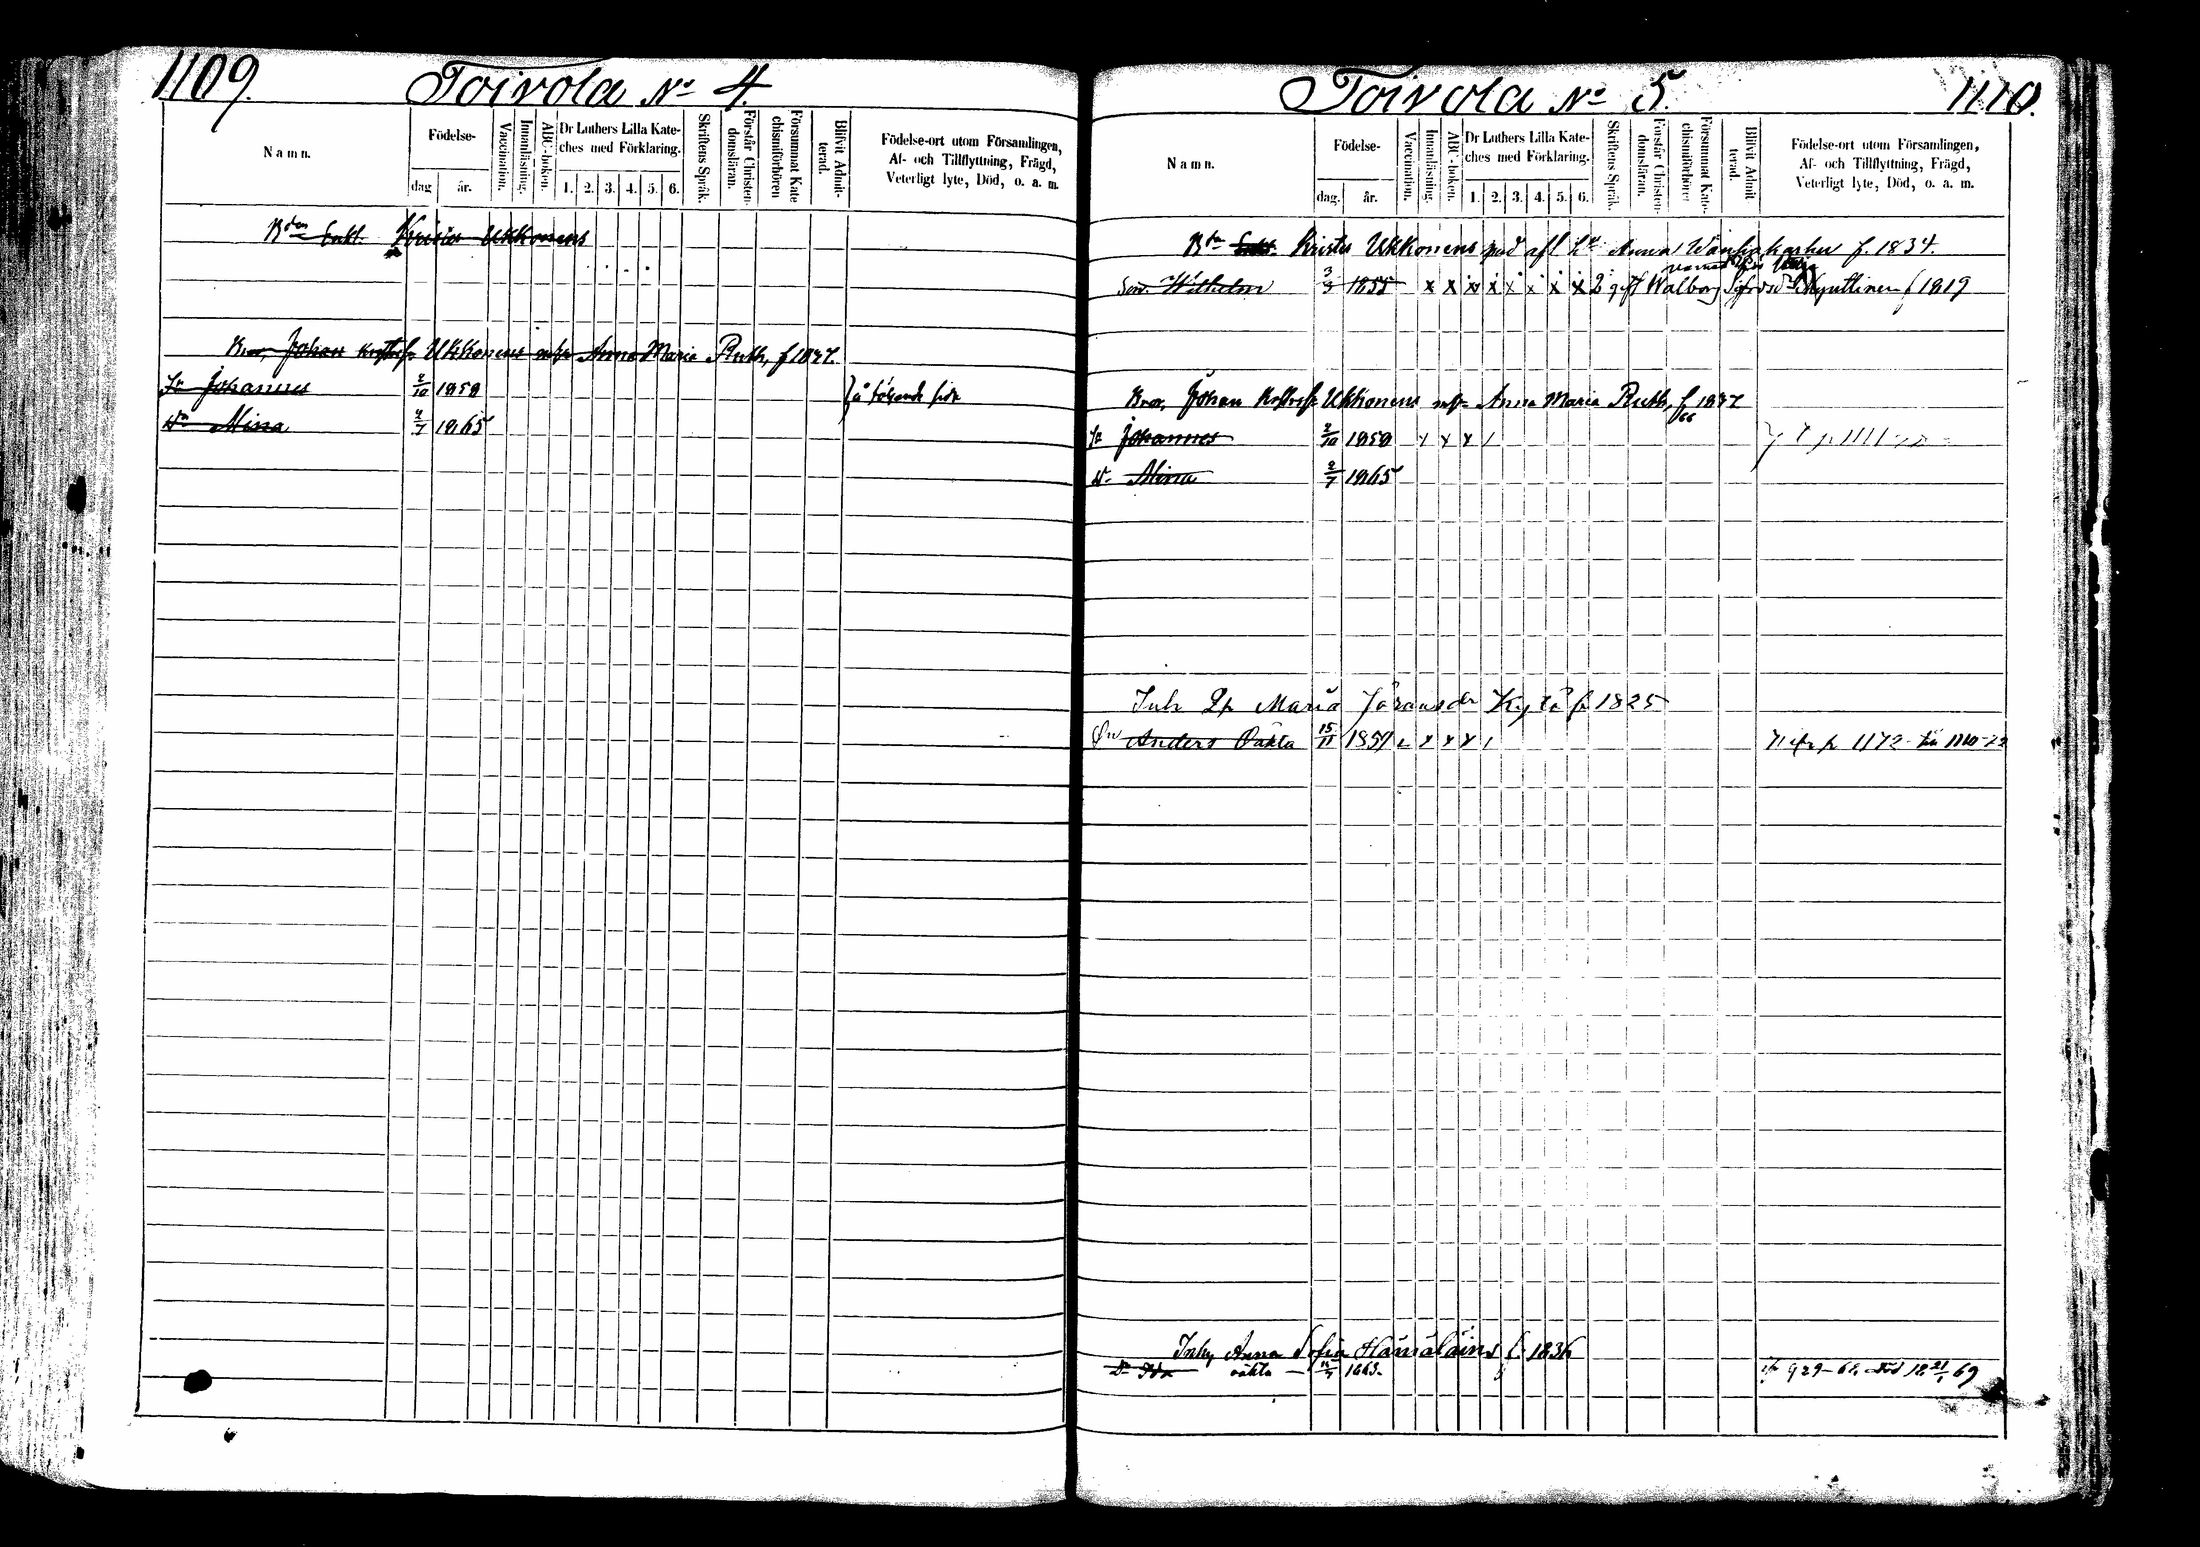 1109.
Toivola No 4.
Namn.
Födelse-
dag
år.
Vaccination.
Innanläsning.
ABC-boken.
Dr Luthers Lilla Kate-
ches med Förklaring.
1. 2. 3. 4. 5. 6.
Skriftens Språk.
Förstår Christen-
domsläran.
Försummat Kate
chismiförhören
Blifvit Admit-
terad.
Födelse-ort utom Församlingen,
Af- och Tillflyttning, Frägd,
Veterligt lyte, Död, o. a. m.
Enkl. Krister Ukkonens
Johan Ukkonens Anna Maria Rutt, f 1837.
Sn Johannes 2/10 1858 å följande sida
Dr Miina 2/7 1865
Toivola No 5.
1110.
Namn.
Födelse-
dag.
år.
Vaccination.
Innanläsning.
ABC-boken.
Dr Luthers Lilla Kate-
ches med Förklaring.
1. 2. 3. 4. 5. 6.
Skriftens Språk.
Förstår Christen-
domsläran.
Försummat Kate-
chismiförhöret
Blifvit Admit
terad.
Födelse-ort utom Församlingen,
Af- och Tillflyttning, Frägd,
Veterligt lyte, Död, o. a. m.
Krister Ukkonens med afl Anna f. 1834.
Son. Wilhelm 3/3 1855 x x x x x x x x 2 gift Walborg f 1819
Johan Ukkonens Anna Maria Rutt, f 1837
Sn Johannes 2/10 1858 x x x /
Dr Miina 2/7 1865
Inh Maria Kytö f 1825
Sn Anders Oäkta 15/11 1857 x x x /
1172
Inhy Anna Sofia Hämäläins f. 1836
Dr Ida oäkta 1863.
929-68. död 18 21/1 69